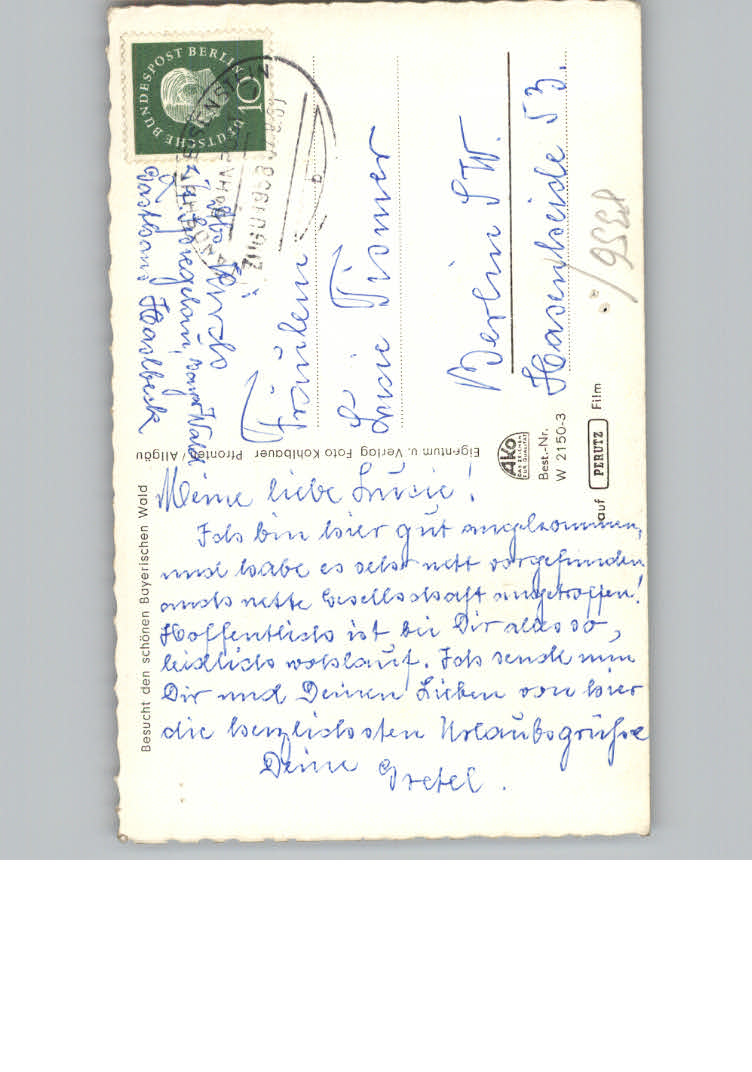 DEUTSCHE BUNDESPOST BERLIN
10
z. Zt.
Spiegelau, bayr. Wald
Gasthaus Haslbeck
Fräulein
Lucie
Berlin SW.
Hasenheide 53.
Eigentum u. Verlag Foto Kohlbauer Pfronten/Allgäu
AKO
DAS ZEICHEN
FÜR QUALITÄT
Best.-Nr.
W 2150-3
auf PERUTZ Film
Besucht den schönen Bayerischen Wald
Meine liebe Lucie!
Ich bin hier gut angekommen,
und habe es sehr nett vorgefunden
auch nette Gesellschaft angetroffen!
Hoffentlich ist bei Dir alles so,
leidlich wohlauf. Ich sende nun
Dir und Deinen Lieben von hier
die herzlichsten Urlaubsgrüße
Deine Gretel.